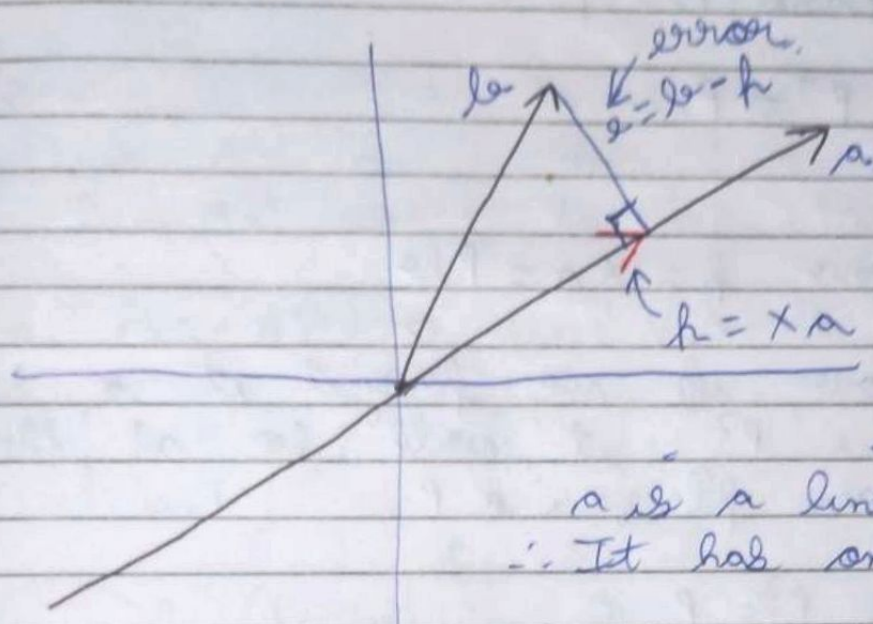 error
b
e = b - p
a
p = x a
a is a lin
∴ It has on